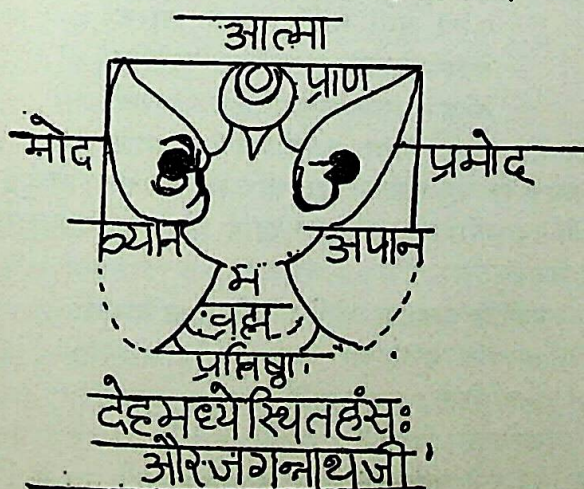 आत्मा
प्राण
मोद
प्रमोद
व्यान
अपान
म
ब्रह्म
प्रतिष्ठा
देहमध्ये स्थितहंसः
और जगन्नाथजी